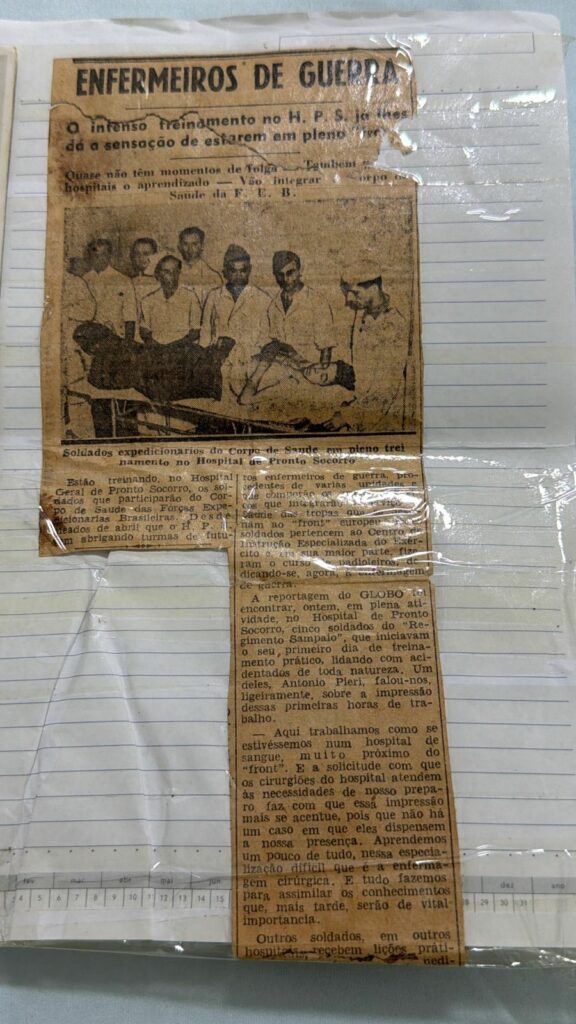 ENFERMEIROS DE GUERRA
O intenso treinamento no H. P. S. já lhes
dá a sensação de estarem em pleno
Quase não têm momentos de folga — Também
hospitais o aprendizado — Vão integrar Corpo
Saude da F. E. B.
Soldados expedicionarios do Corpo de Saude em pleno trei
namento no Hospital de Pronto Socorro
Estão treinando, no Hospital
Geral de Pronto Socorro, os sol-
dados que participarão do Cor-
po de Saude das Forças Expe-
dicionarias Brasileiras. Desde
meados de abril que o H. P.
vem abrigando turmas de futu-
ros enfermeiros de guerra, pro-
cedentes de varias unidades e
que comporão os
tos que integrarão o
Saude das tropas que
nam ao "front" europeu
soldados pertencem ao Centro de
Instrução Especializada do Exér-
cito e, em sua maior parte, fize-
ram o curso de padioleiros, de-
dicando-se, agora, à enfermagem
de guerra.
A reportagem do GLOBO foi
encontrar, ontem, em plena ati-
vidade, no Hospital de Pronto
Socorro, cinco soldados do "Re-
gimento Sampaio", que iniciavam
o seu primeiro dia de treina-
mento prático, lidando com aci-
dentados de toda natureza. Um
deles, Antonio Pieri, falou-nos,
ligeiramente, sobre a impressão
dessas primeiras horas de tra-
balho.
— Aqui trabalhamos como se
estivéssemos num hospital de
sangue, muito próximo do
"front". E a solicitude com que
os cirurgiões do hospital atendem
às necessidades de nosso prepa-
ro faz com que essa impressão
mais se acentue, pois que não há
um caso em que eles dispensem
a nossa presença. Aprendemos
um pouco de tudo, nessa especia-
lização difícil que é a enferma-
gem cirúrgica. E tudo fazemos
para assimilar os conhecimentos
que, mais tarde, serão de vital
importancia.
Outros soldados, em outros
hospitais recebem lições práti-
fev mar abr mai jun dez ano
4 5 6 7 8 9 10 11 12 13 14 15 28 29 30 31